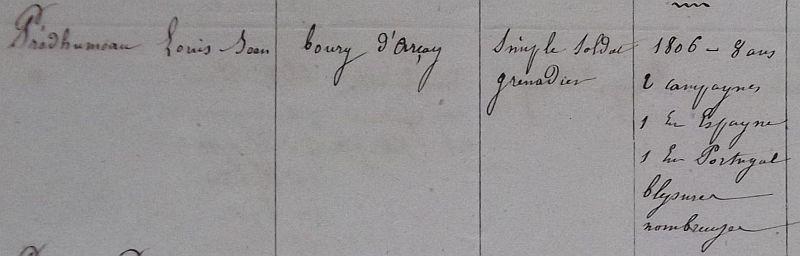 Prédhumeau Louis-Jean bourg d'Arçay Simple Soldat 1806 - 8 ans
grenadier 2 campagnes
1 En Espagne
1 En Portugal
blessures
nombreuses